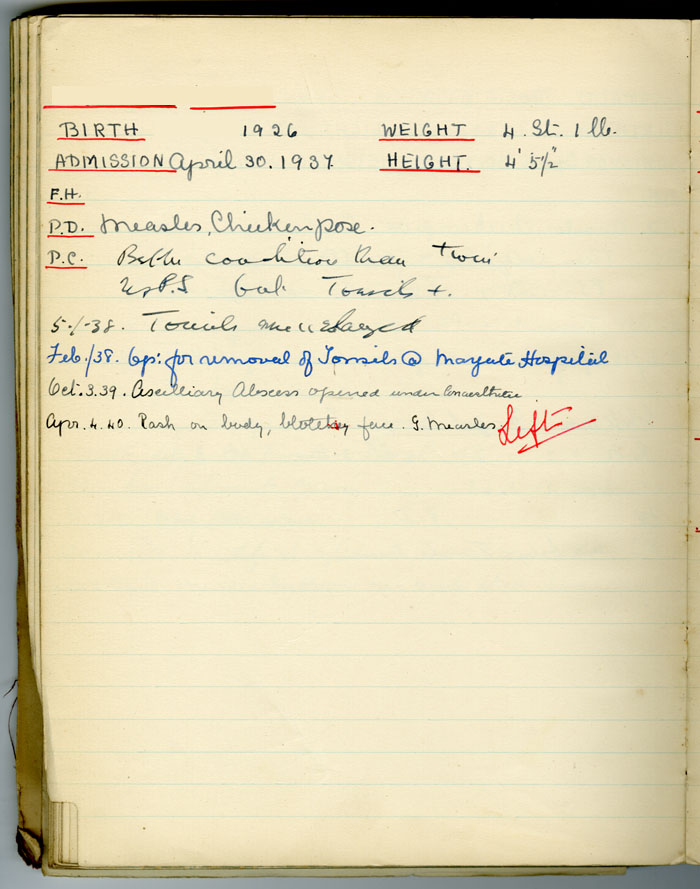 BIRTH 1926 WEIGHT 4. St. 1 lb.
ADMISSION April 30. 1937 HEIGHT. 4' 5½"
F.H.
P.D. Measles, Chickenpose.
P.C. Better condition than twin
Tonsils +.
5-1-38. Tonsils enlarged
Feb./38. Op: for removal of Tonsils @ Margate Hospital
Oct. 3. 39. Axcilliary Abscess opened under anaesthetic.
Apr. 4. 40. Rash on body, blotchy face. G. Measles. Left